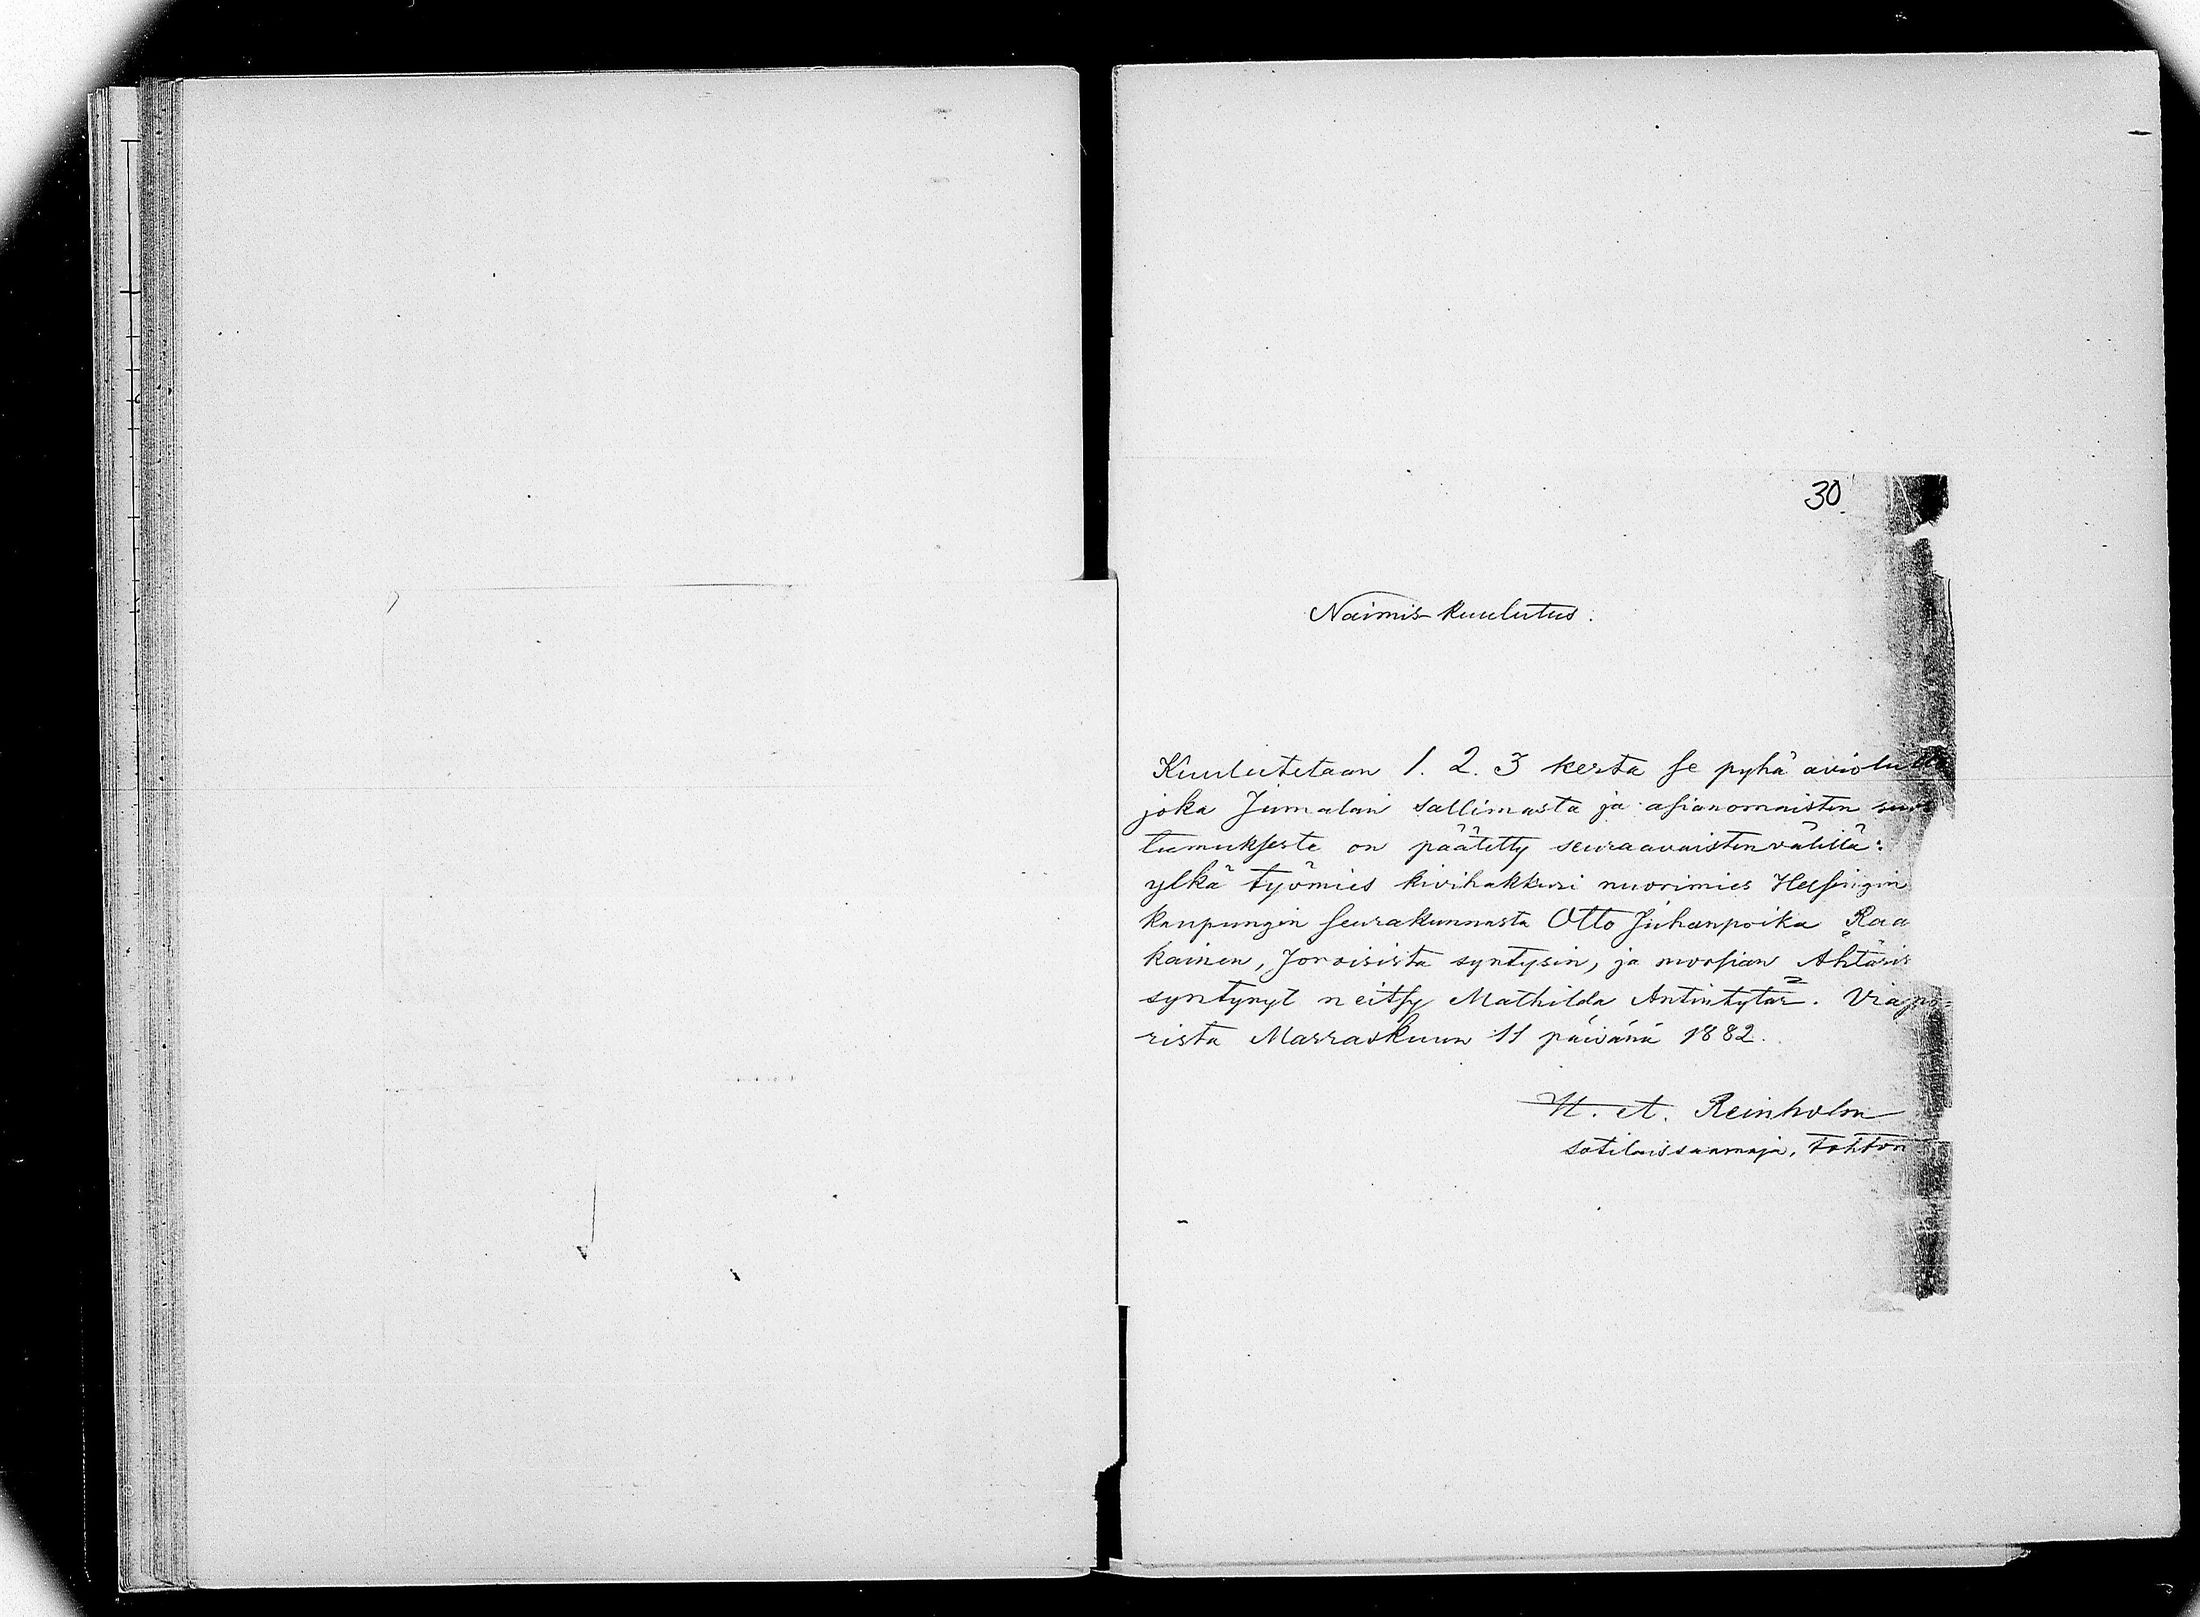 30.
Naimis-kuulutus.
Kuulutetaan 1. 2. 3 kerta se pyhä avioliitto
joka Jumalan sallimasta ja asianomaisten suos
tumuksesta on päätetty seuraavaisten välillä:
ylkä työmies kivihakkuri nuorimies Helsingin
kaupungin seurakunnasta Otto Juhanpoika Raa
kainen, Joroisista syntysin, ja morsian Ahtäris
syntynyt neitsy Mathilda Antintytär. Viapo=
rista Marraskuun 11 päivänä 1882.
Reinholm
sotilaissaarnaja, tohtori